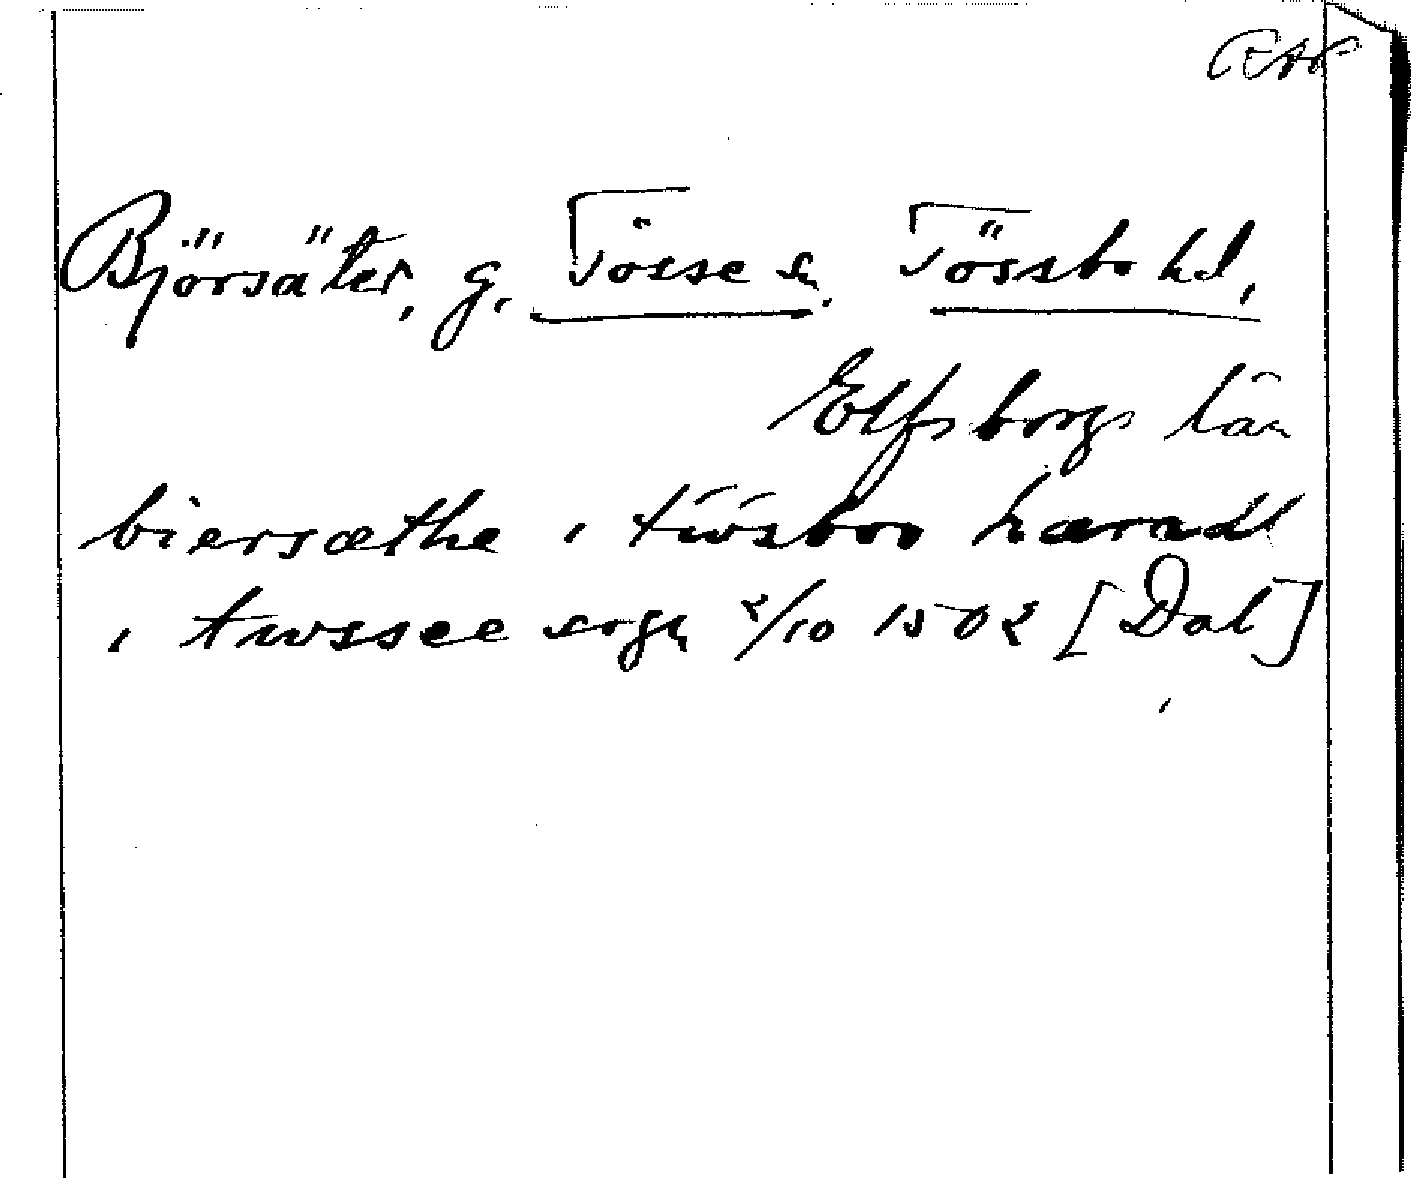 Björsäter, g. Tösse s. Tössbo hd,
Elfsborgs län
biersæthe i tiwsboo hæradt
i twssee sogn 2/10 1502 [Dal]